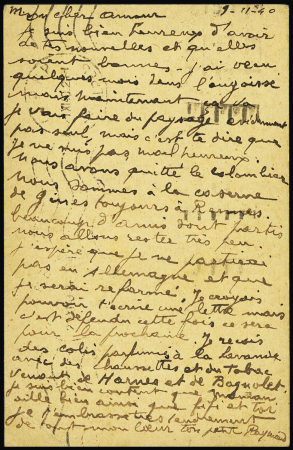 Mon cher amour 9-11-40
Je suis bien heureux d'avoir
de tes nouvelles et qu'elles
soient bonnes. j'ai vécu
quelques mois dans l'angoisse
mais maintenant
je vais faire du paysage évidemment
pas seul, mais c'est te dire que
je ne suis pas malheureux.
nous avons quitté le colombier
nous sommes à la caserne
de gines toujours à Rennes.
beaucoup d'amis sont partis
nous allons rester très peu
j'espère que je ne partirai
pas en Allemagne et que
je serai réformé. Je croyais
pouvoir t'écrire une lettre mais
c'est défendu cette fois ce sera
pour la prochaine. Je reçois
des colis parfumés à la lavande
avec des chaussettes et du tabac
venant de Harnes et de Bagnolet.
je suis bien content que maman
aille bien ainsi que fifi et toi
je t'embrasse tendrement
de tout mon cœur ton petit Raymond